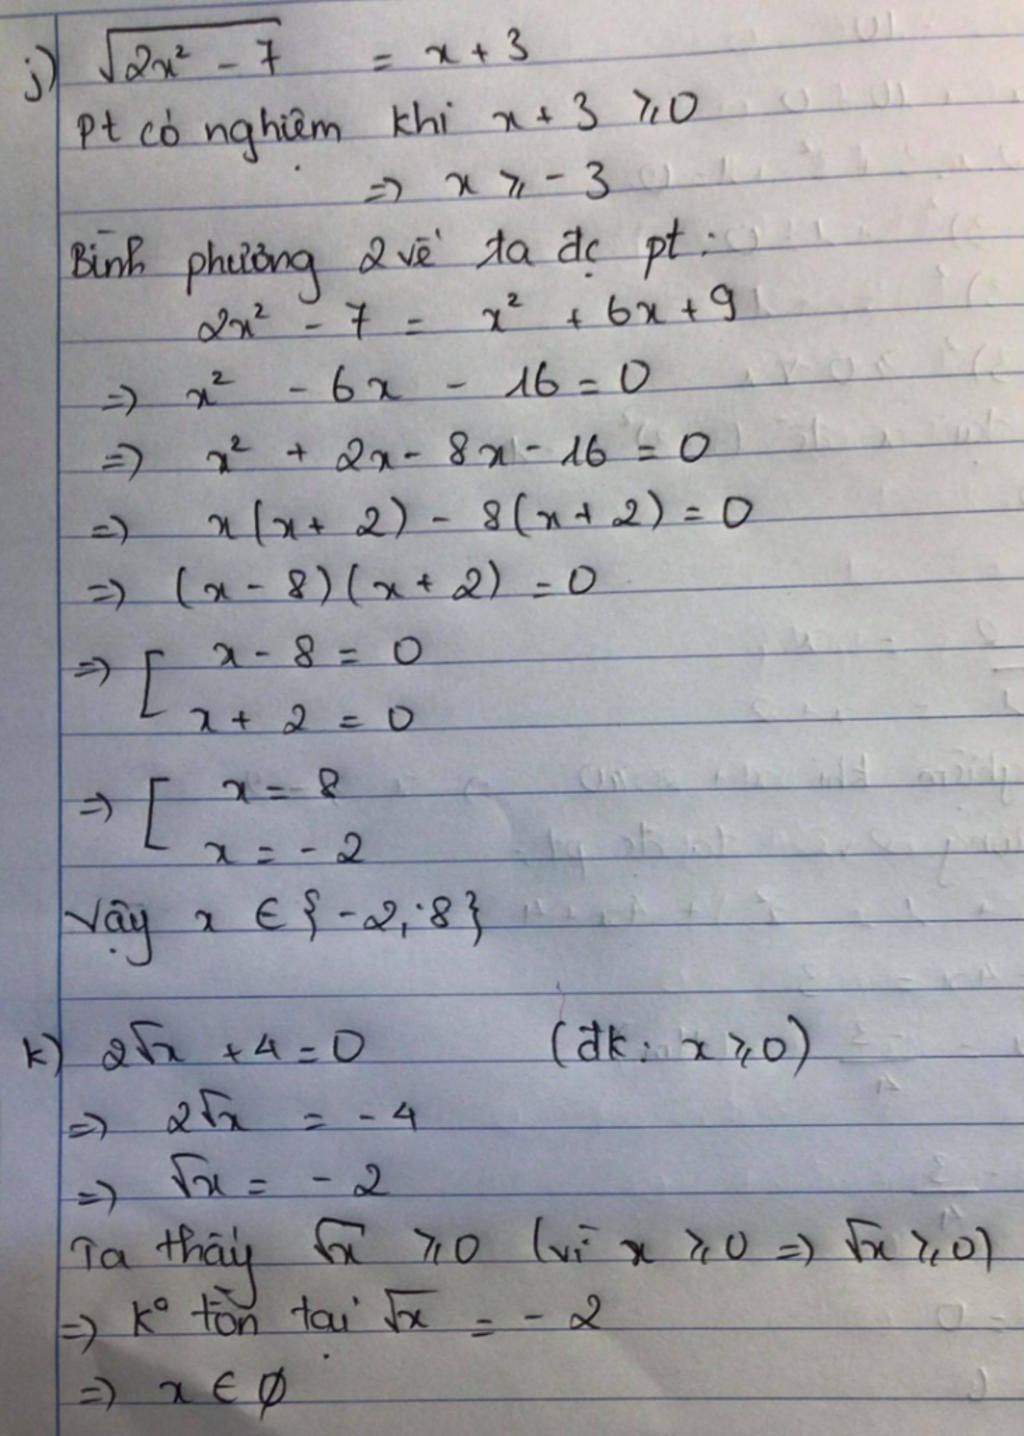 j) √(2x² - 7) = x + 3
Pt có nghiệm khi x + 3 ⩾ 0
=> x ⩾ -3
Bình phương 2 vế ta đc pt:
2x² - 7 = x² + 6x + 9
=> x² - 6x - 16 = 0
=> x² + 2x - 8x - 16 = 0
=> x(x + 2) - 8(x + 2) = 0
=> (x - 8)(x + 2) = 0
=> [ x - 8 = 0
x + 2 = 0
=> [ x = 8
x = -2
Vậy x ∈ {-2; 8}
k) 2√x + 4 = 0 (đk: x ⩾ 0)
=> 2√x = -4
=> √x = -2
Ta thấy √x ⩾ 0 (vì x ⩾ 0 => √x ⩾ 0)
=> K° tồn tại √x = -2
=> x ∈ ∅